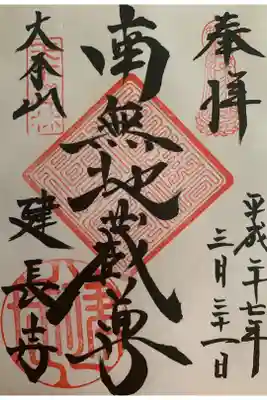 奉拝
平成二十七年
三月二十一日
南無地蔵尊
大本山
建長寺